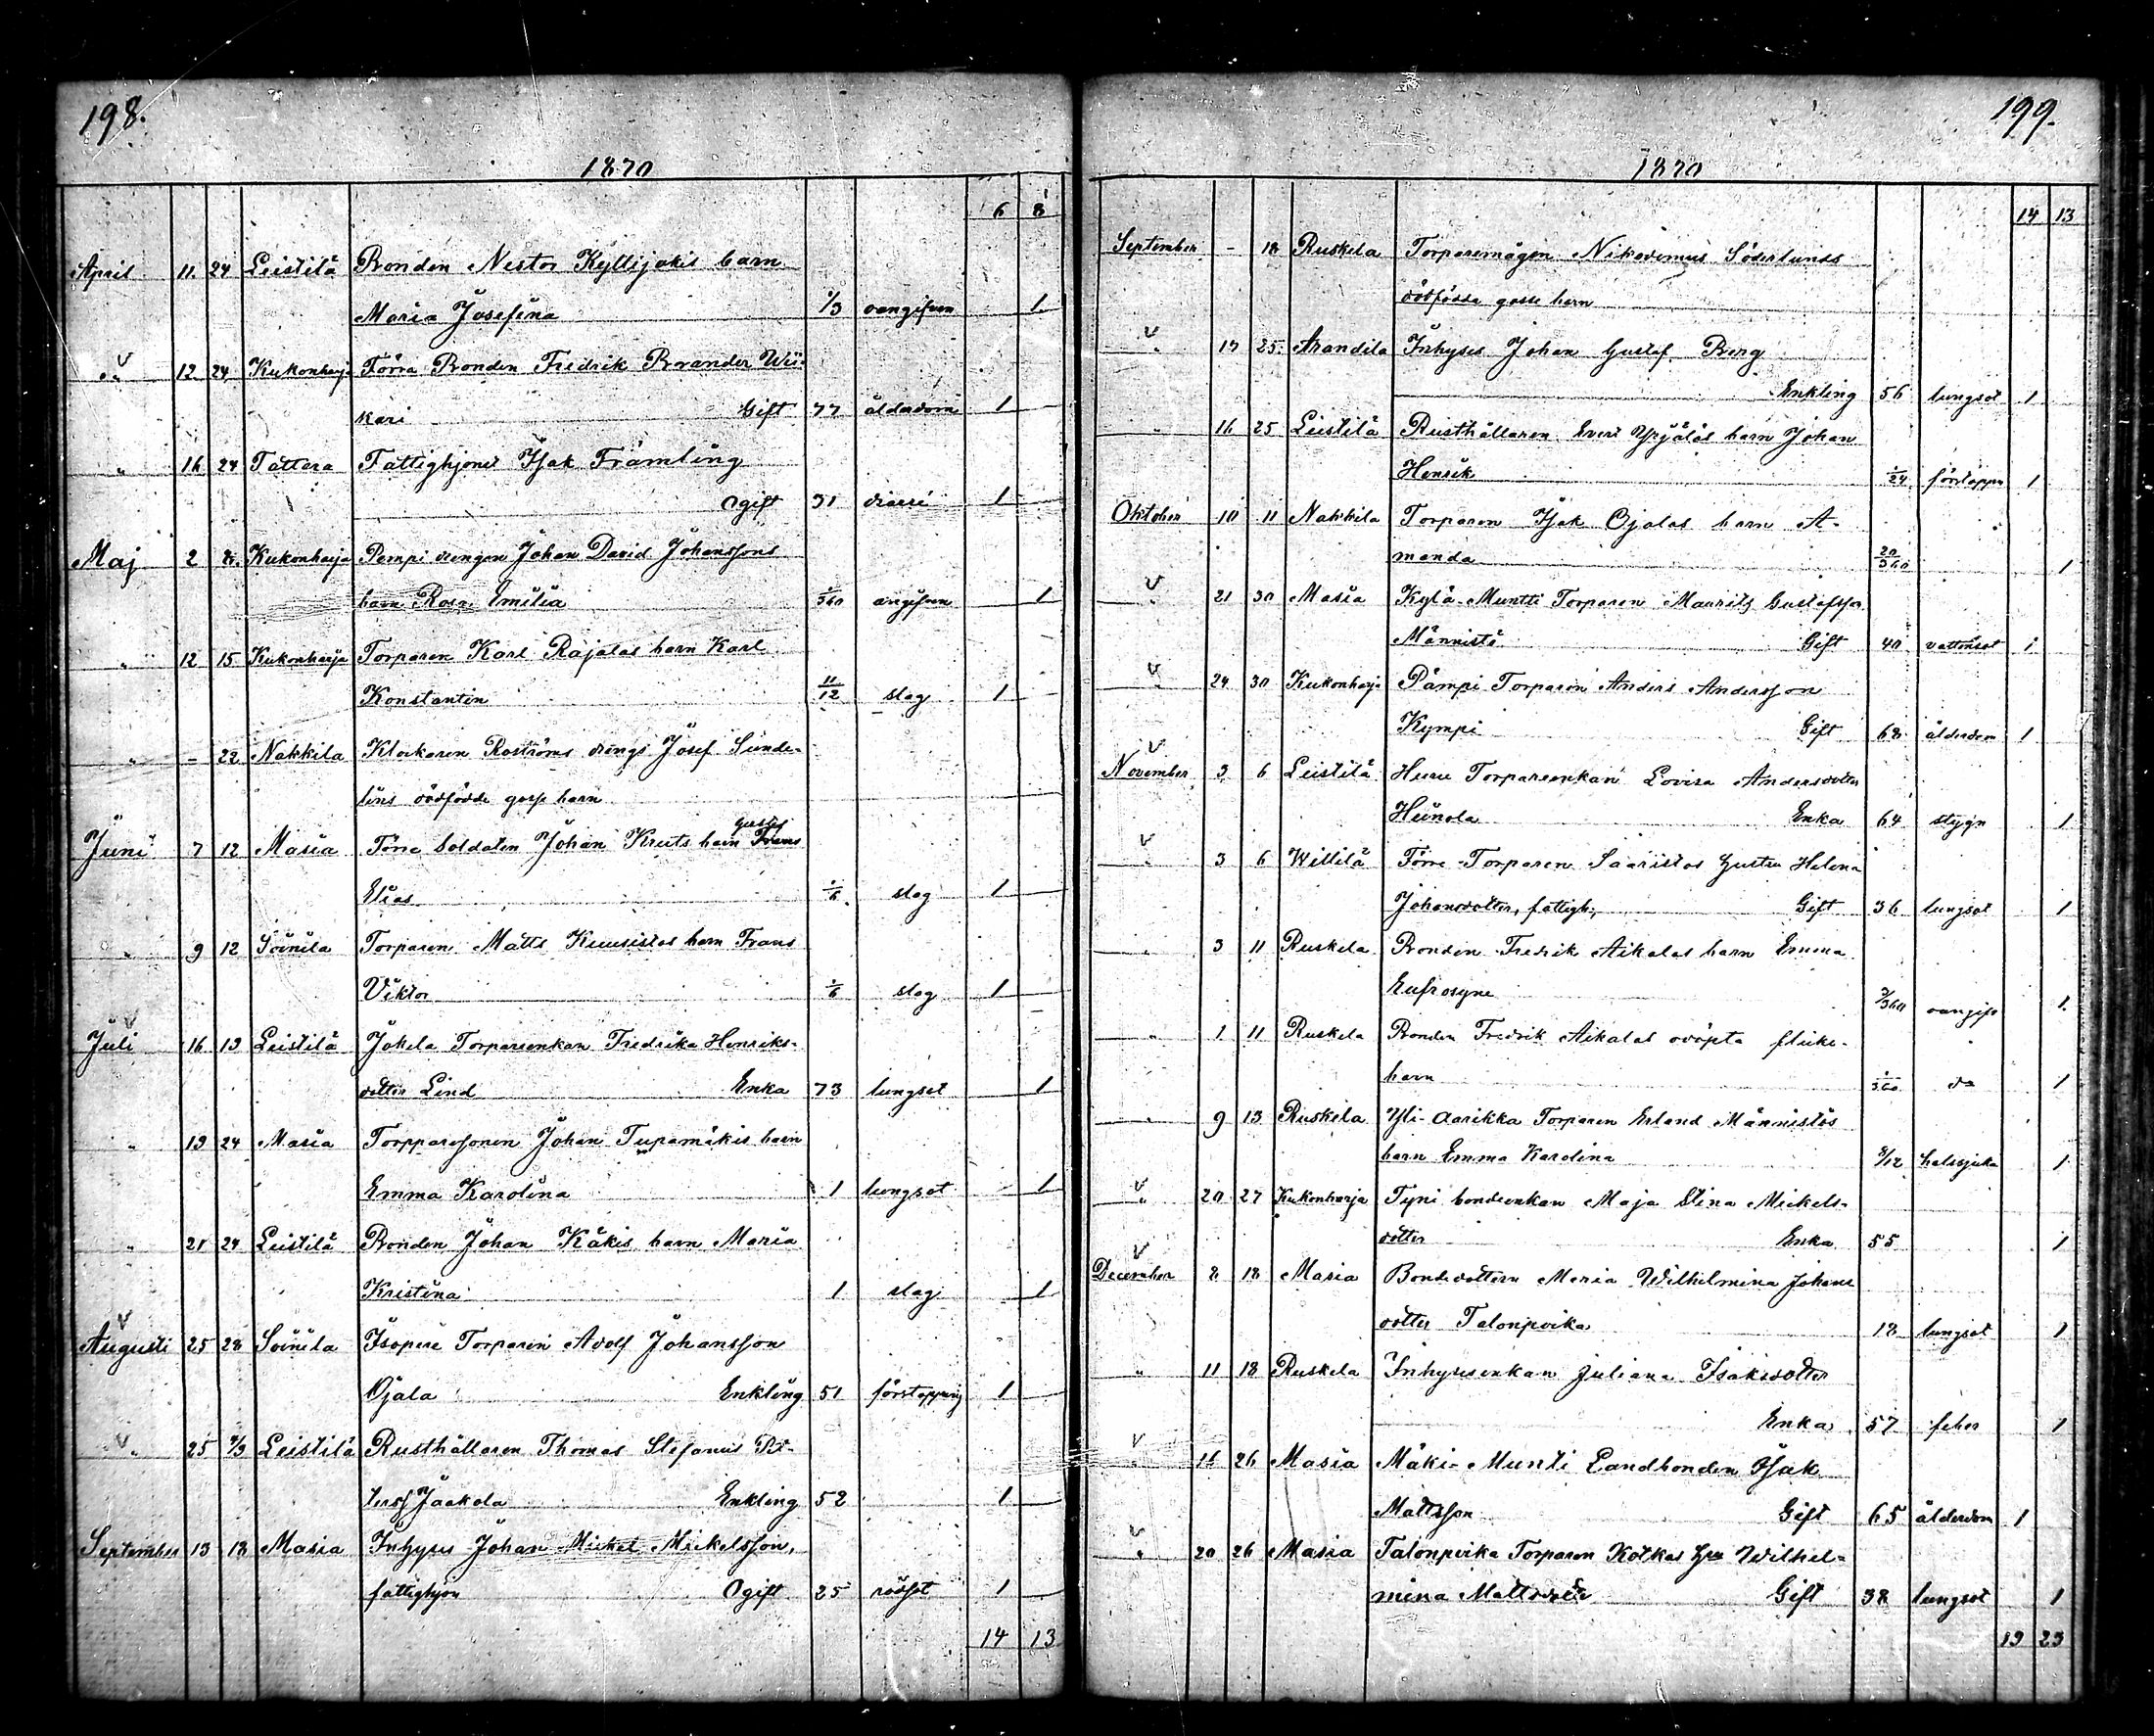 198.
1870
6 8
April 11 24 Leistilä Bonden Nestor Kyllijokis barn
Maria Josefina 1/3 oangifven 1
" 12 24 Kukonharja Förra Bonden Fredrik Brander Wii-
kari Gift 77 ålderdom 1
" 16 24 Tattara Fattighjonet Isak Främling
Ogift 31 diarré 1
Maj 2 8. Kukonharja Pempi drengen Johan David Johanssons
barn Rosa Emilia 1/360 oangifven 1
" 12 15 Kukonharja Torparen Karl Rajalas barn Karl
Konstantin 11/12 slag 1
" - 22 Nakkila Klockaren Roströms drengs Josef Sunde-
lins dödfödde gosse barn
Juni 7 12 Masia Förre Soldaten Johan Kruts barn Gustaf Frans
Elias 1/6 slag 1
" 9 12 Soinila Torparen Matts Kuusistos barn Frans
Viktor 1/6 slag 1
Juli 16 19 Leistilä Jokela Torpareenkan Fredrika Henriks-
dotter Lind Enka 73 lungsot 1
" 19 24 Masia Torpparesonen Johan Tupamäkis barn
Emma Karolina 1 lungsot 1
" 21 24 Leistilä Bonden Johan Käkis barn Maria
Kristina 1 slag 1
Augusti 25 28 Soinila Isopere Torparen Adolf Johansson
Ojala Enkling 51 förstoppning 1
" 25 4/9 Leistilä Rusthållaren Thomas Stefanus Pet-
terss Jaakola Enkling 52 1
September 13 18 Masia Inhyses Johan Mickel Mickelsson,
fattighjon Ogift 25 rödsot 1
14 13
199.
1870
14 13
September - 18 Ruskela Torparemågen Nikodemus Söderlunds
dödfödda gosse barn
" 17 25 Arandila Inhyses Johan Gustaf Berg
Enkling 56 lungsot 1
" 16 25 Leistilä Rusthållaren Evert Yrjäläs barn Johan
Henrik 1/24 förstoppn 1
Oktober 10 11 Nakkila Torparen Isak Ojalas barn A-
manda 20/360 1
" 21 30 Masia Kylä-Muntti Torparen Maurits Gustafsson
Männistö Gift 40 vattensot 1
" 24 30 Kukonharja Pämpi Torparen Anders Andersson
Kympi Gift 68 ålderdom 1
November 3 6 Leistilä Torpareenkan Lovisa Andersdotter
Heinola Enka 64 stygn 1
" 3 6 Willilä Förre Torparen Saaristos hustru Helena
Johansdotter, fattigh: Gift 36 lungsot 1
" 3 11 Ruskela Bonden Fredrik Aikalas barn Emma
Eufrosyne 3/360 oangifv 1
" 1 11 Ruskela Bonden Fredrik Aikalas odöpta flicke-
barn 1/360 do 1
" 9 13 Ruskela Yli-Aarikka Torparen Erland Männistös
barn Emma Karolina 8/12 halssjuka 1
" 20 27 Kukonharja Tyni bondeenkan Maja Stina Mickels-
dotter Enka 55 1
December 8 18 Masia Bondedottern Maria Wilhelmina Johans
dotter Talonpoika 18 lungsot 1
" 11 18 Ruskela Inhysesenkan Juliana Isaksdotter
Enka 57 feber 1
" 16 26 Masia Mäki-Munti Landbonden Isak
Mattsson Gift 65 ålderdom 1
" 20 26 Masia Talonpoika Torparen Kotkas hru Wilhel-
mina Mattsdotter Gift 38 lungsot 1
19 23